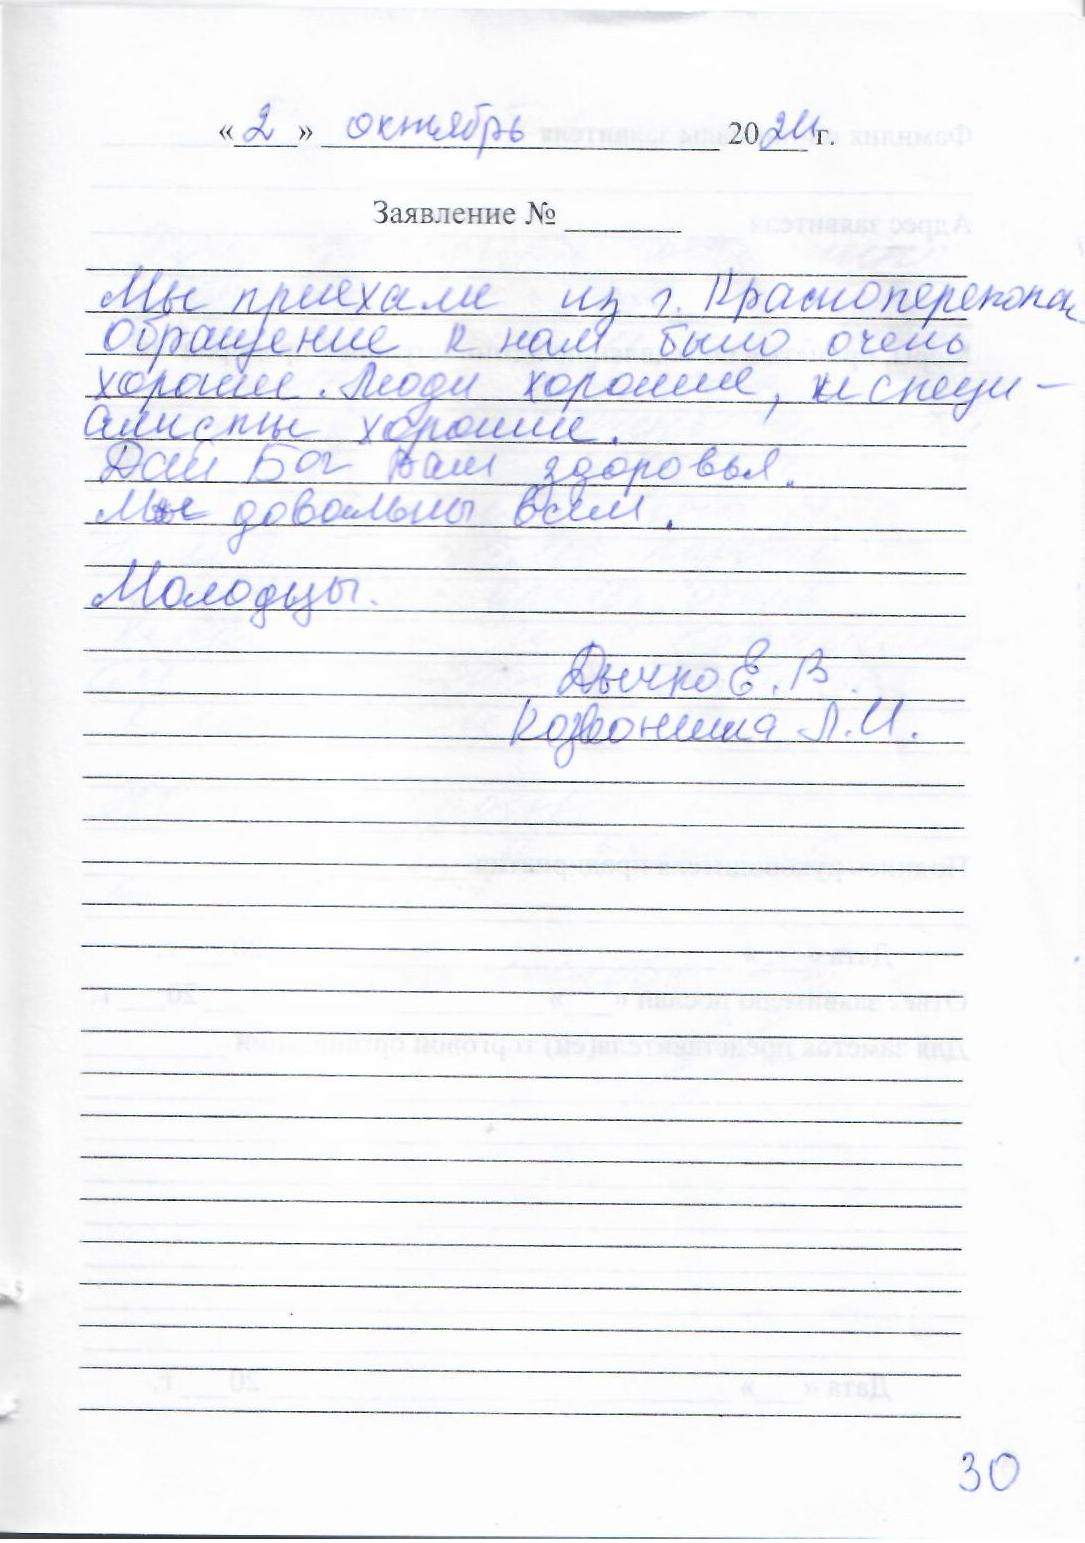 « 2 » октябрь 2024 г.
Заявление № ______
Мы приехали из г. Красноперекопа
Обращение к нам было очень
хорошие. Люди хорошие, и специ-
алисты хорошие.
Дай Бог вам здоровья.
Мы довольны всем.
Молодцы.
Е. В.
Л. И.
30